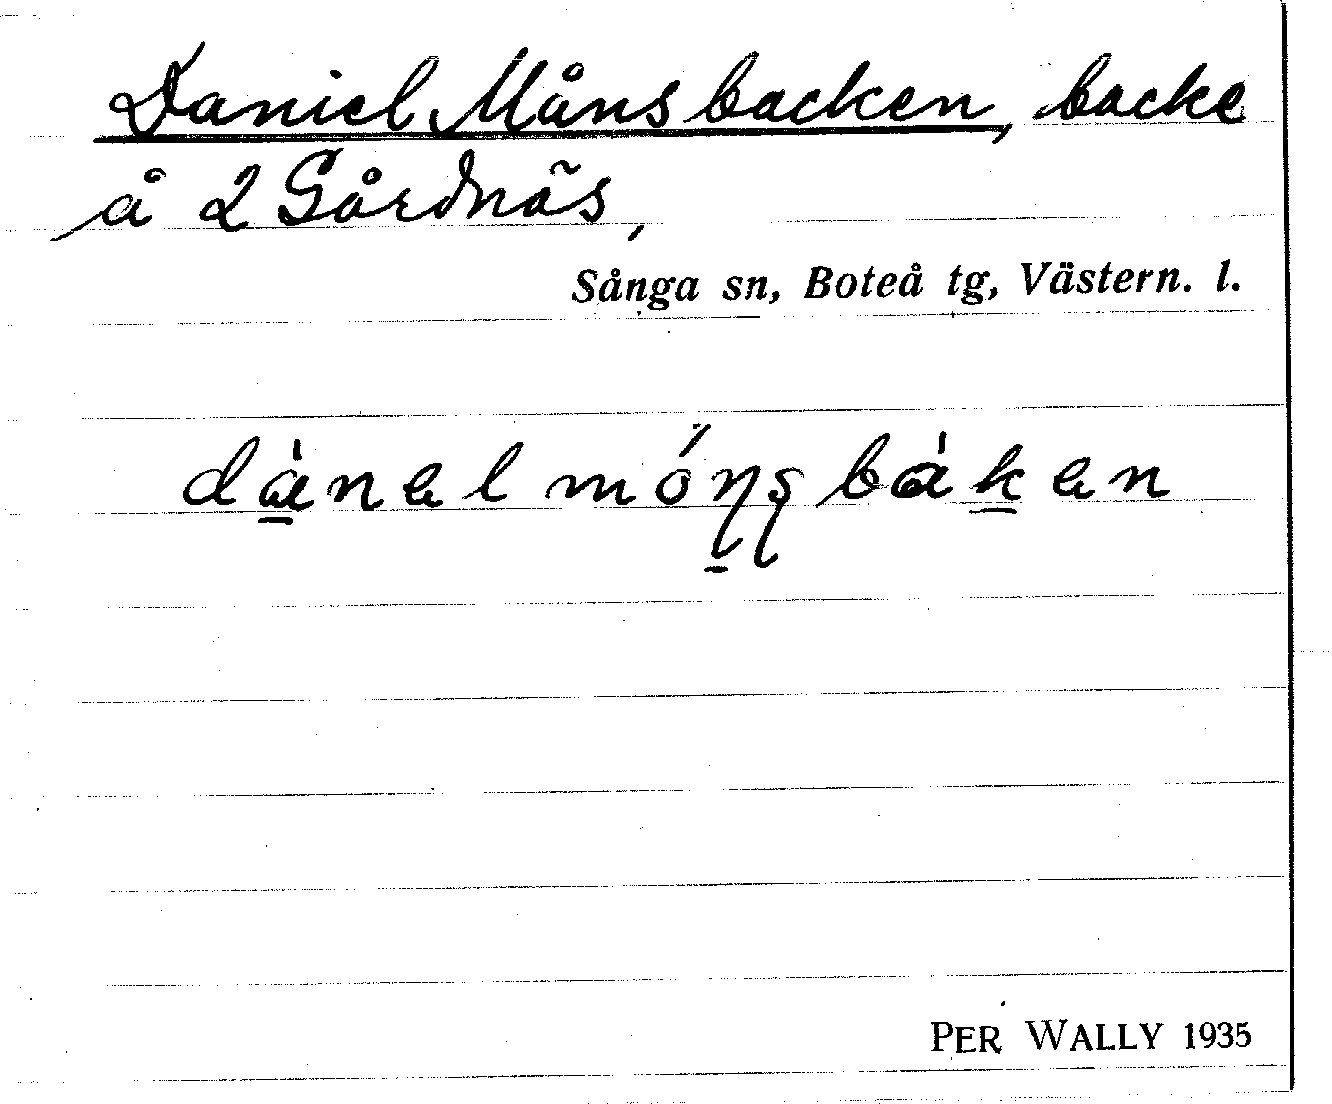 Daniel Månsbacken, backe
å 2 Gårdnäs,
Sånga sn, Boteå tg, Västern. l.
dànelmóŋsbàken
PER WALLY 1935